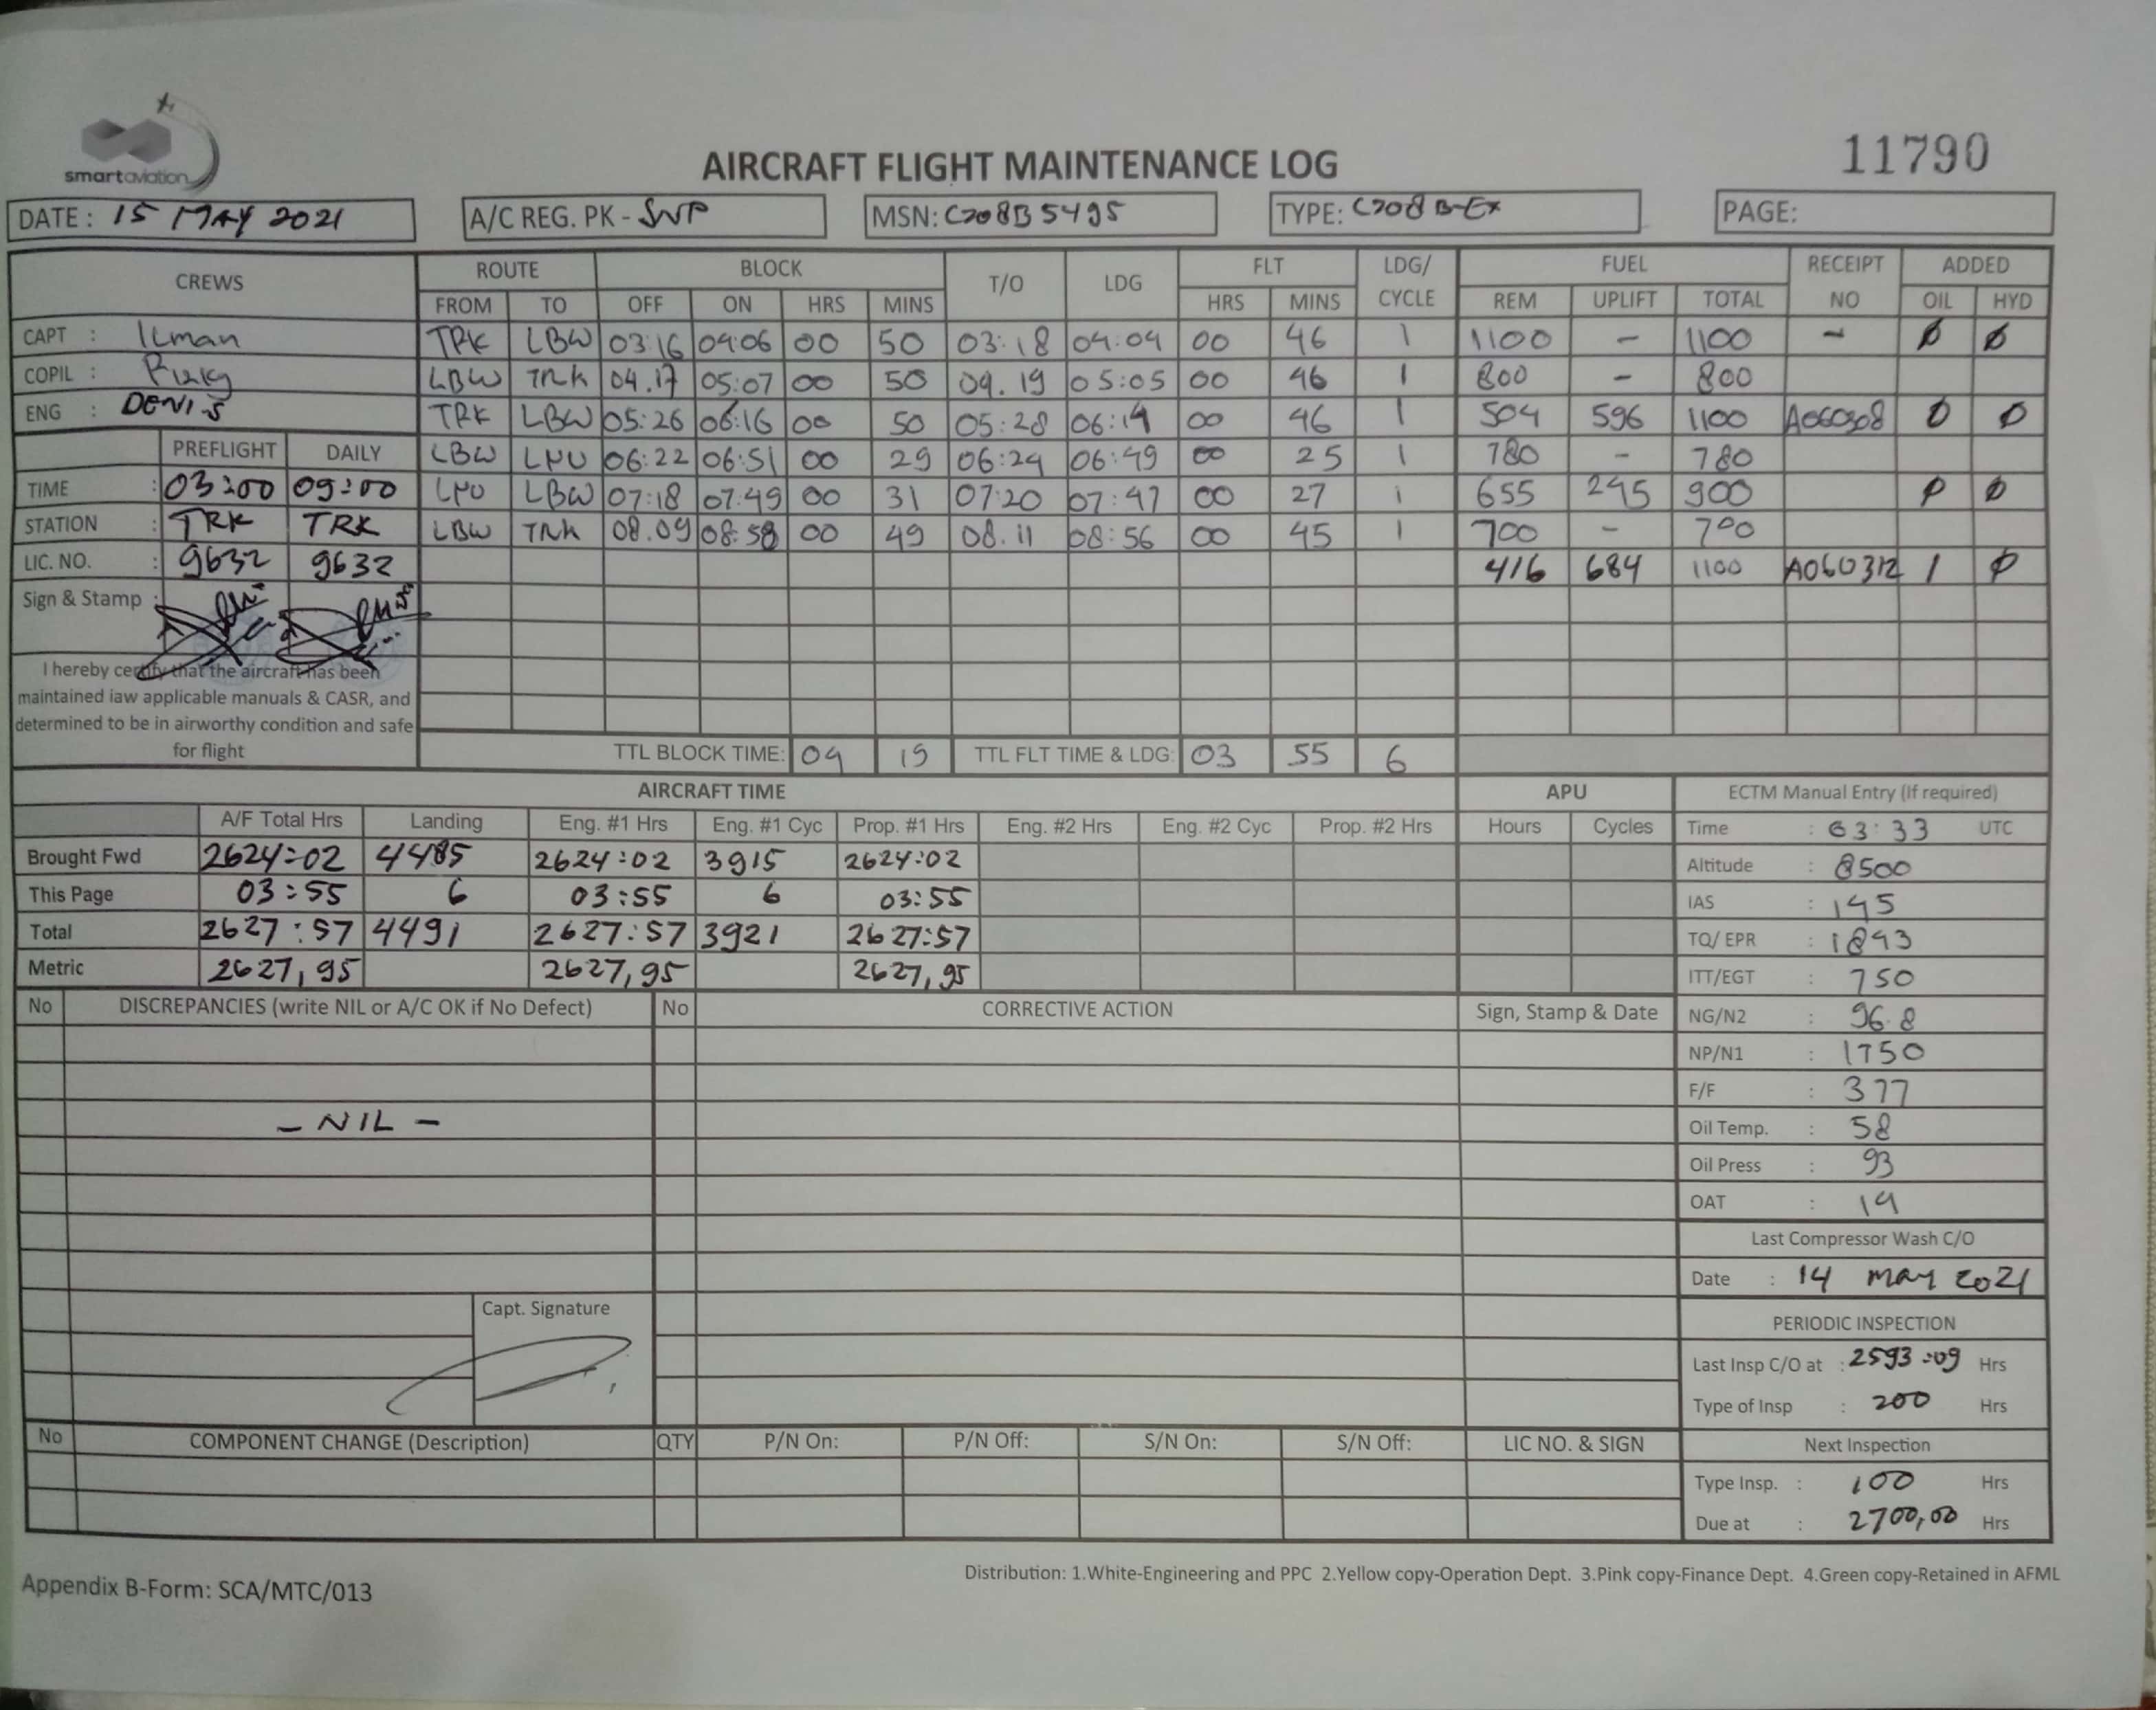 smartaviation
AIRCRAFT FLIGHT MAINTENANCE LOG
11790
DATE : 15 MAY 2021 A/C REG. PK - SNP MSN: C208B5495 TYPE: C208B-EX PAGE:
CREWS ROUTE BLOCK T/O LDG FLT LDG/ CYCLE FUEL RECEIPT NO ADDED
FROM TO OFF ON HRS MINS HRS MINS REM UPLIFT TOTAL OIL HYD
CAPT : Ilman TRK LBW 03:16 04:06 00 50 03:18 04:04 00 46 1 1100 - 1100 - Ø Ø
COPIL : Rizky LBW TRK 04.17 05:07 00 50 04.19 05:05 00 46 1 800 - 800
ENG : DENIS TRK LBW 05:26 06:16 00 50 05:28 06:14 00 46 1 504 596 1100 A060308 0 Ø
PREFLIGHT DAILY LBW LNU 06:22 06:51 00 29 06:24 06:49 00 25 1 780 - 780
TIME : 03:00 09:00 LNU LBW 07:18 07:49 00 31 07:20 07:47 00 27 1 655 245 900 Ø Ø
STATION : TRK TRK LBW TRK 08.09 08:58 00 49 08.11 08:56 00 45 1 700 - 700
LIC. NO. : 9632 9632 416 684 1100 A060312 1 Ø
Sign & Stamp :
I hereby certify that the aircraft has been
maintained iaw applicable manuals & CASR, and
determined to be in airworthy condition and safe
for flight
TTL BLOCK TIME: 04 19 TTL FLT TIME & LDG: 03 55 6
AIRCRAFT TIME APU
A/F Total Hrs Landing Eng. #1 Hrs Eng. #1 Cyc Prop. #1 Hrs Eng. #2 Hrs Eng. #2 Cyc Prop. #2 Hrs Hours Cycles
Brought Fwd 2624:02 4485 2624:02 3915 2624:02
This Page 03:55 6 03:55 6 03:55
Total 2627:57 4491 2627:57 3921 2627:57
Metric 2627,95 2627,95 2627,95
ECTM Manual Entry (If required)
Time : 03:33 UTC
Altitude : 8500
IAS : 145
TQ/ EPR : 1843
ITT/EGT : 750
NG/N2 : 96.8
NP/N1 : 1750
F/F : 377
Oil Temp. : 58
Oil Press : 93
OAT : 14
Last Compressor Wash C/O
Date : 14 may 2021
PERIODIC INSPECTION
Last Insp C/O at : 2593:09 Hrs
Type of Insp : 200 Hrs
Next Inspection
Type Insp. : 100 Hrs
Due at : 2700,00 Hrs
No DISCREPANCIES (write NIL or A/C OK if No Defect) No CORRECTIVE ACTION Sign, Stamp & Date
- NIL -
Capt. Signature
No COMPONENT CHANGE (Description) QTY P/N On: P/N Off: S/N On: S/N Off: LIC NO. & SIGN
Appendix B-Form: SCA/MTC/013
Distribution: 1.White-Engineering and PPC 2.Yellow copy-Operation Dept. 3.Pink copy-Finance Dept. 4.Green copy-Retained in AFML